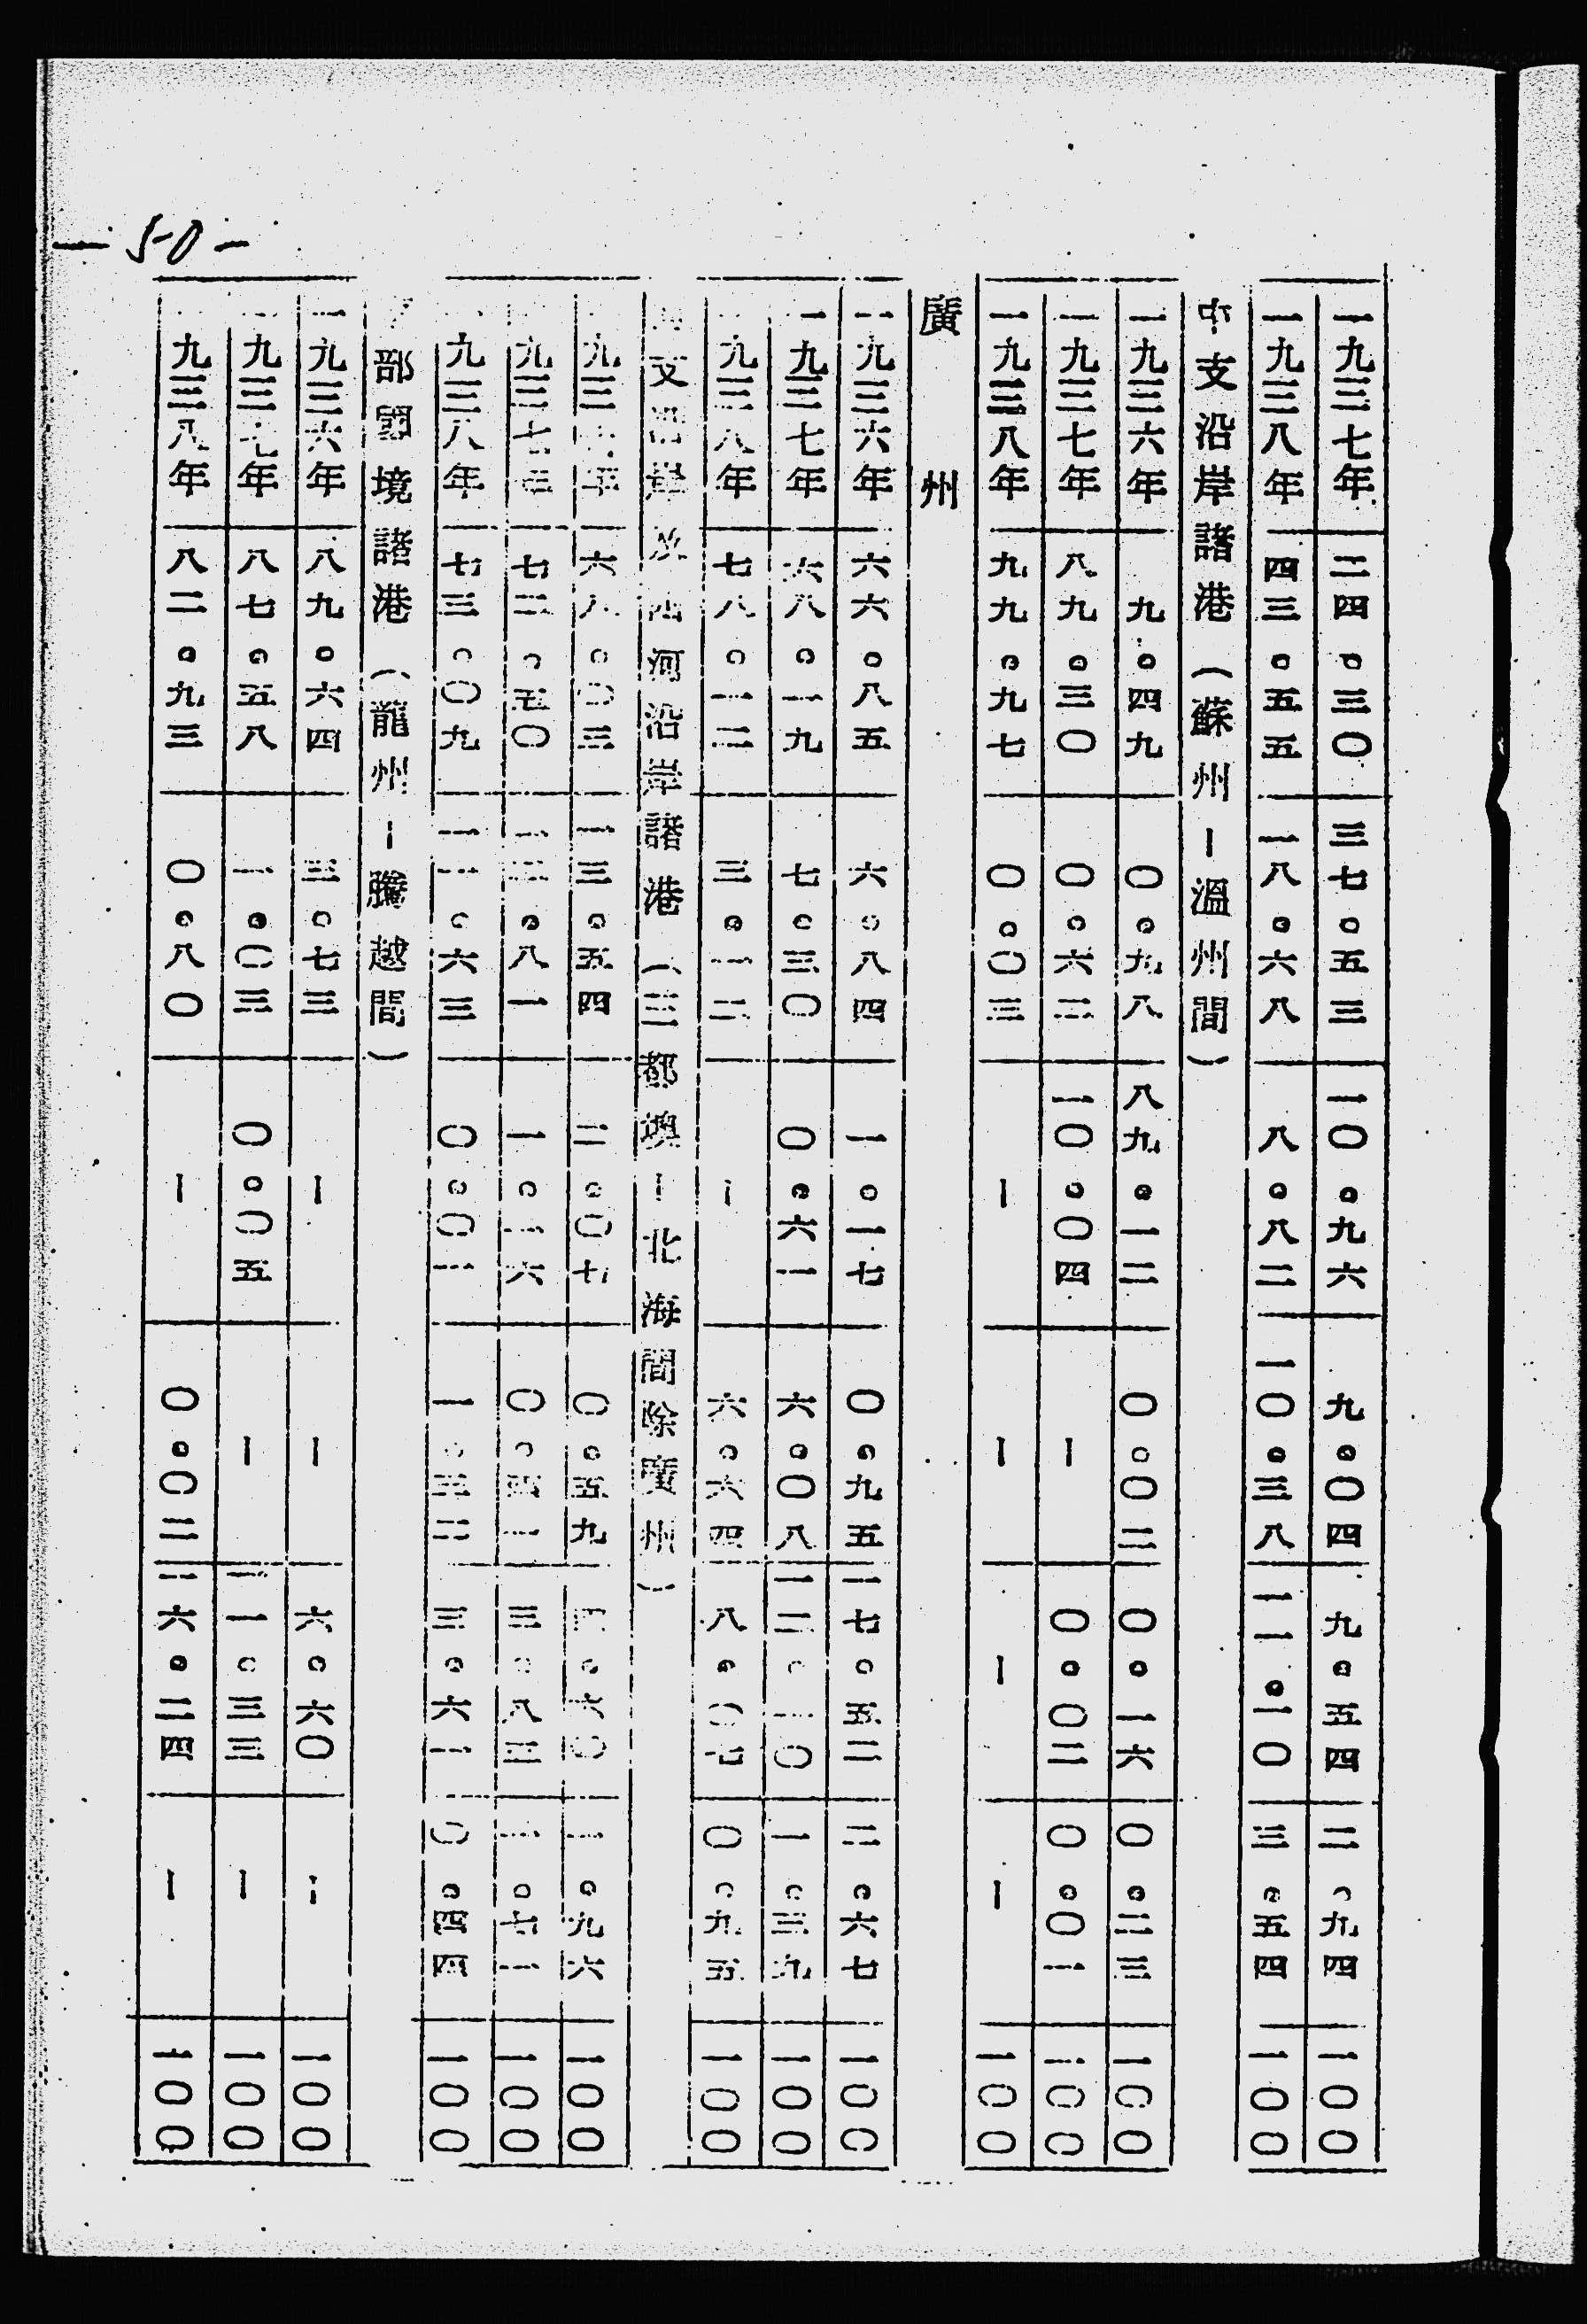 — 50 —
一九三七年 二四。三〇 三七。五三 一〇。九六 九。〇四 九。五四 二。九四 一〇〇
一九三八年 四三。五五 一八。六八 八。八二 一〇。三八 一一。一〇 三。五四 一〇〇
中支沿岸諸港(蘇州ー溫州間)
一九三六年 九。四九 〇。九八 八九。一二 〇。〇二 〇。一六 〇。二三 一〇〇
一九三七年 八九。三〇 〇。六二 一〇。〇四 ー 〇。〇二 〇。〇一 一〇〇
一九三八年 九九。九七 〇。〇三 ー ー ー ー 一〇〇
廣州
一九三六年 六六。八五 六。八四 一。一七 〇。九五 一七。五二 二。六七 一〇〇
一九三七年 六八。一九 七。三〇 〇。六一 六。〇八 一二。一〇 一。三九 一〇〇
一九三八年 七八。一二 三。一二 ー 六。六四 八。〇七 〇。九五 一〇〇
支沿岸及 河沿岸諸港(三都澳ー北海間除廣州)
一九三六年 六八。〇三 一三。五四 二。〇七 〇。五九 四。六〇 一。九六 一〇〇
一九三七年 七二。五〇 一二。八一 一。一六 〇。四一 三。八三 一。七一 一〇〇
一九三八年 七三。〇九 一一。六三 〇。〇一 一。三二 三。六一 〇。四四 一〇〇
部國境諸港(龍州ー騰越間)
一九三六年 八九。六四 三。七三 ー ー 六。六〇 ー 一〇〇
一九三七年 八七。五八 一。〇三 〇。〇五 ー 一一。三三 ー 一〇〇
一九三八年 八二。九三 〇。八〇 ー 〇。〇二 一六。二四 ー 一〇〇